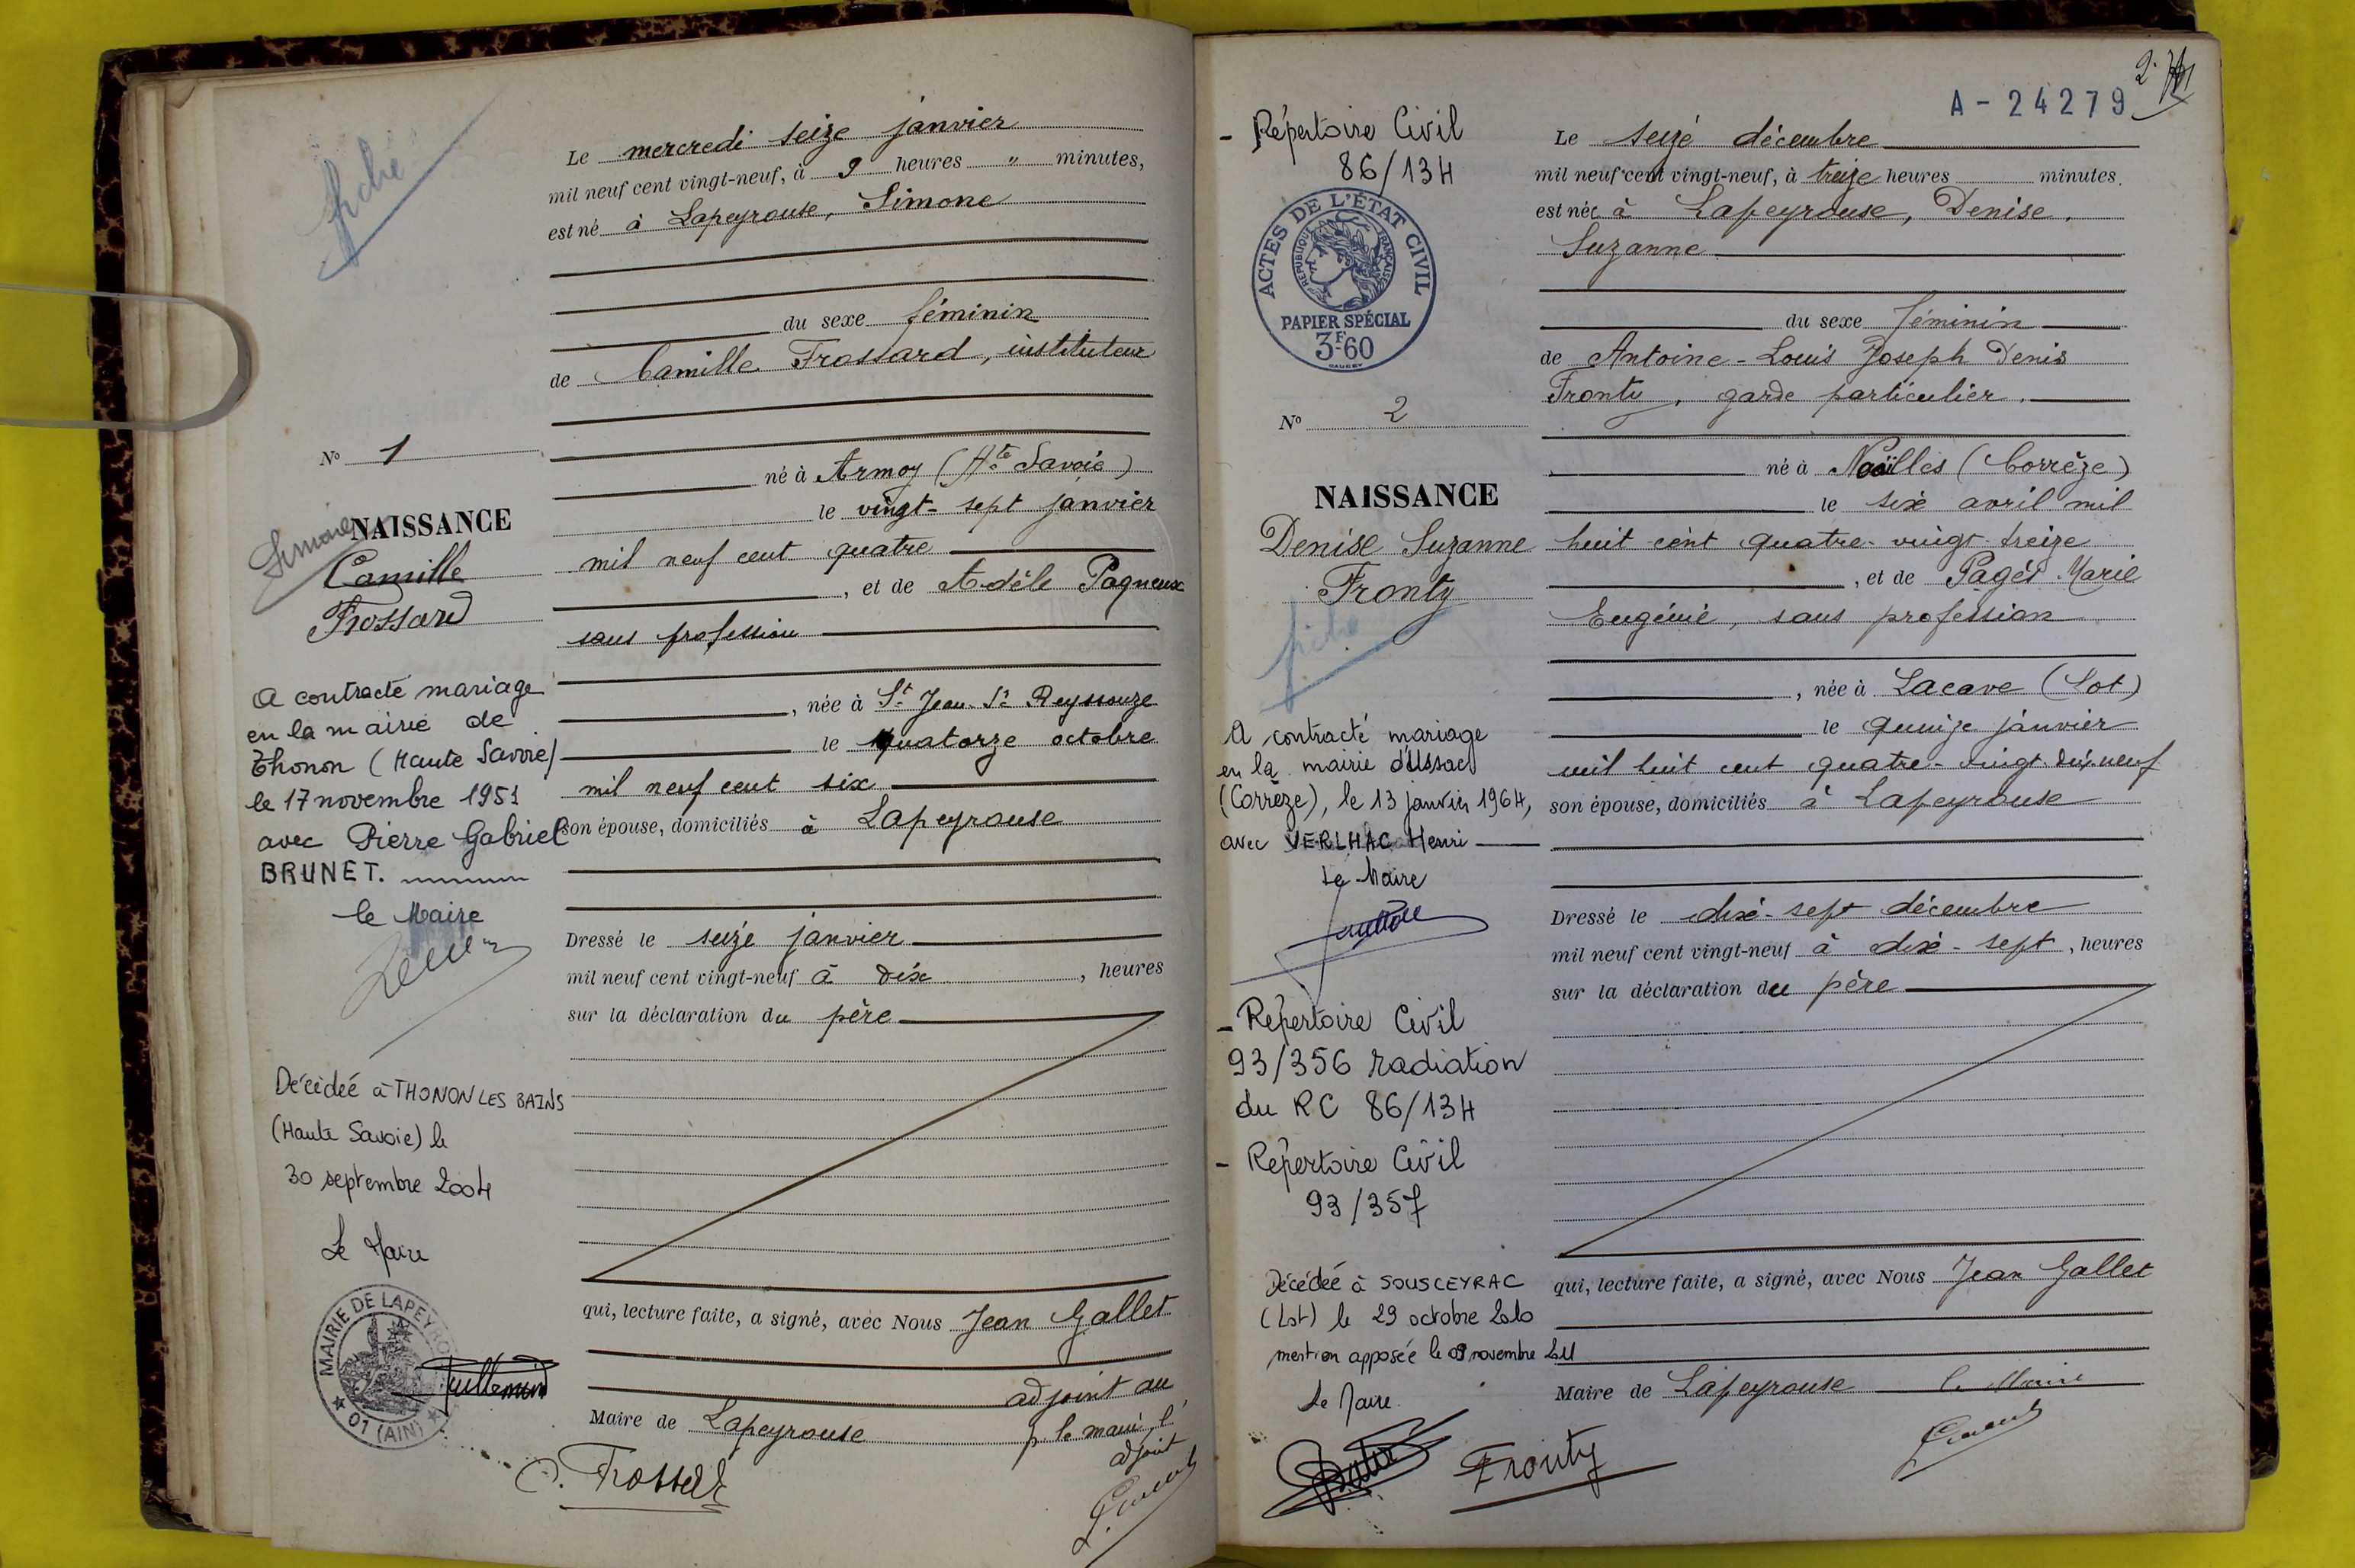 fiche
Le mercredi seize janvier
mil neuf cent vingt-neuf, à 9 heures " minutes,
est né à Lapeyrouse, Simone
du sexe féminin
de Camille Frossard, instituteur
né à Armoy (Hte Savoie)
le vingt-sept janvier
mil neuf cent quatre
, et de Adèle Pagneux
sans profession
, née à St Jean Sr Reyssouze
le quatorze octobre
mil neuf cent six
son épouse, domiciliés à Lapeyrouse
Dressé le seize janvier
mil neuf cent vingt-neuf à dix, heures
sur la déclaration du père
qui, lecture faite, a signé, avec Nous Jean Gallet
adjoint au
Maire de Lapeyrouse
p. le maire, l'
adjoint
C. Frossard
No 1
NAISSANCE
Simone
Camille
Frossard
A contracté mariage
en la mairie de
Thonon (Haute Savoie)
le 17 novembre 1951
avec Pierre Gabriel
BRUNET.
le Maire
Décédée à THONON LES BAINS
(Haute Savoie) le
30 septembre 2004
Le Maire
MAIRIE DE LAPEYROUSE
01 (AIN)
A-24279
2
- Répertoire Civil
86/134
ACTES DE L'ÉTAT CIVIL
RÉPUBLIQUE FRANÇAISE
PAPIER SPÉCIAL
3F.60
No 2
NAISSANCE
Denise Suzanne
Fronty
fiche
A contracté mariage
en la mairie d'Ussac
(Corrèze), le 13 janvier 1964,
avec VERLHAC Henri
Le Maire
- Répertoire Civil
93/356 radiation
du RC 86/134
- Répertoire Civil
93/357
Décédée à SOUSCEYRAC
(Lot) le 29 octobre 2010
mention apposée le 09 novembre 2011
Le Maire
Le seize décembre
mil neuf cent vingt-neuf, à treize heures minutes.
est née à Lapeyrouse, Denise,
Suzanne
du sexe féminin
de Antoine-Louis Joseph Denis
Fronty, garde particulier.
né à Noailles (Corrèze)
le six avril mil
huit cent quatre-vingt-treize
, et de Pagès Marie
Eugénie, sans profession
, née à Lacave (Lot)
le quinze janvier
mil huit cent quatre-vingt-dix neuf
son épouse, domiciliés à Lapeyrouse
Dressé le dix-sept décembre
mil neuf cent vingt-neuf à dix-sept, heures
sur la déclaration du père
qui, lecture faite, a signé, avec Nous Jean Gallet
Maire de Lapeyrouse le Maire
Fronty